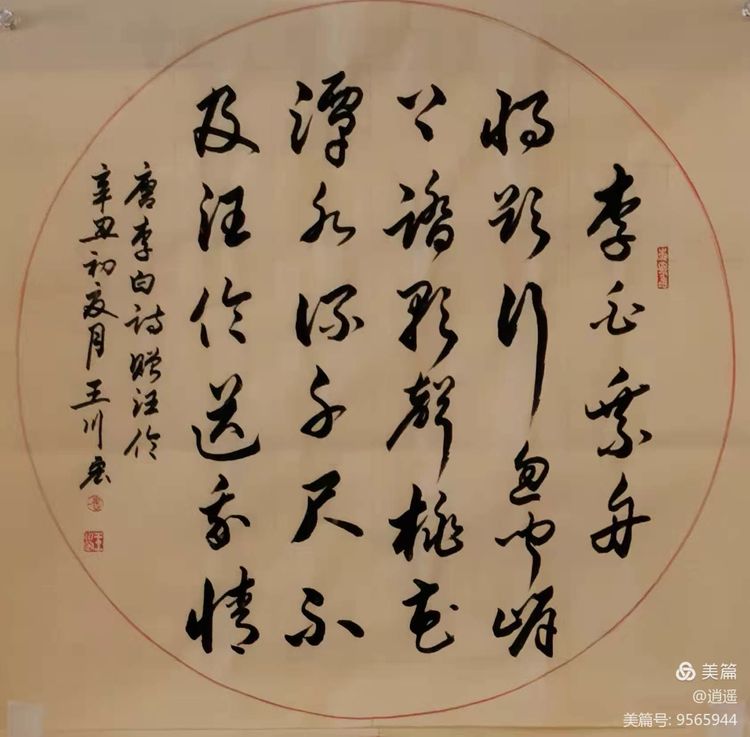 李白乘舟
将欲行忽闻岸
上踏歌聲桃花
潭水深千尺不
及汪伦送我情
唐李白诗赠汪伦
辛丑初夏月王川
美篇
@逍遥
美篇号: 9565944